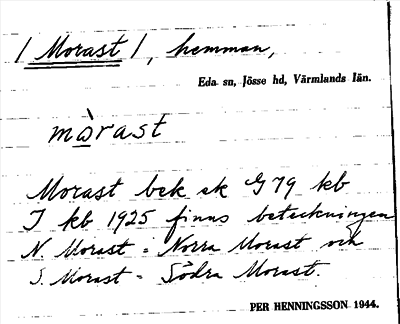 / Morast /, hemman,
Eda sn, Jösse hd, Värmlands län.
mòrast
Morast bek ek G 79 kb
I kb 1925 finns beteckningen
N. Morast = Norra Morast och
S. Morast = Södra Morast.
PER HENNINGSSON 1944.